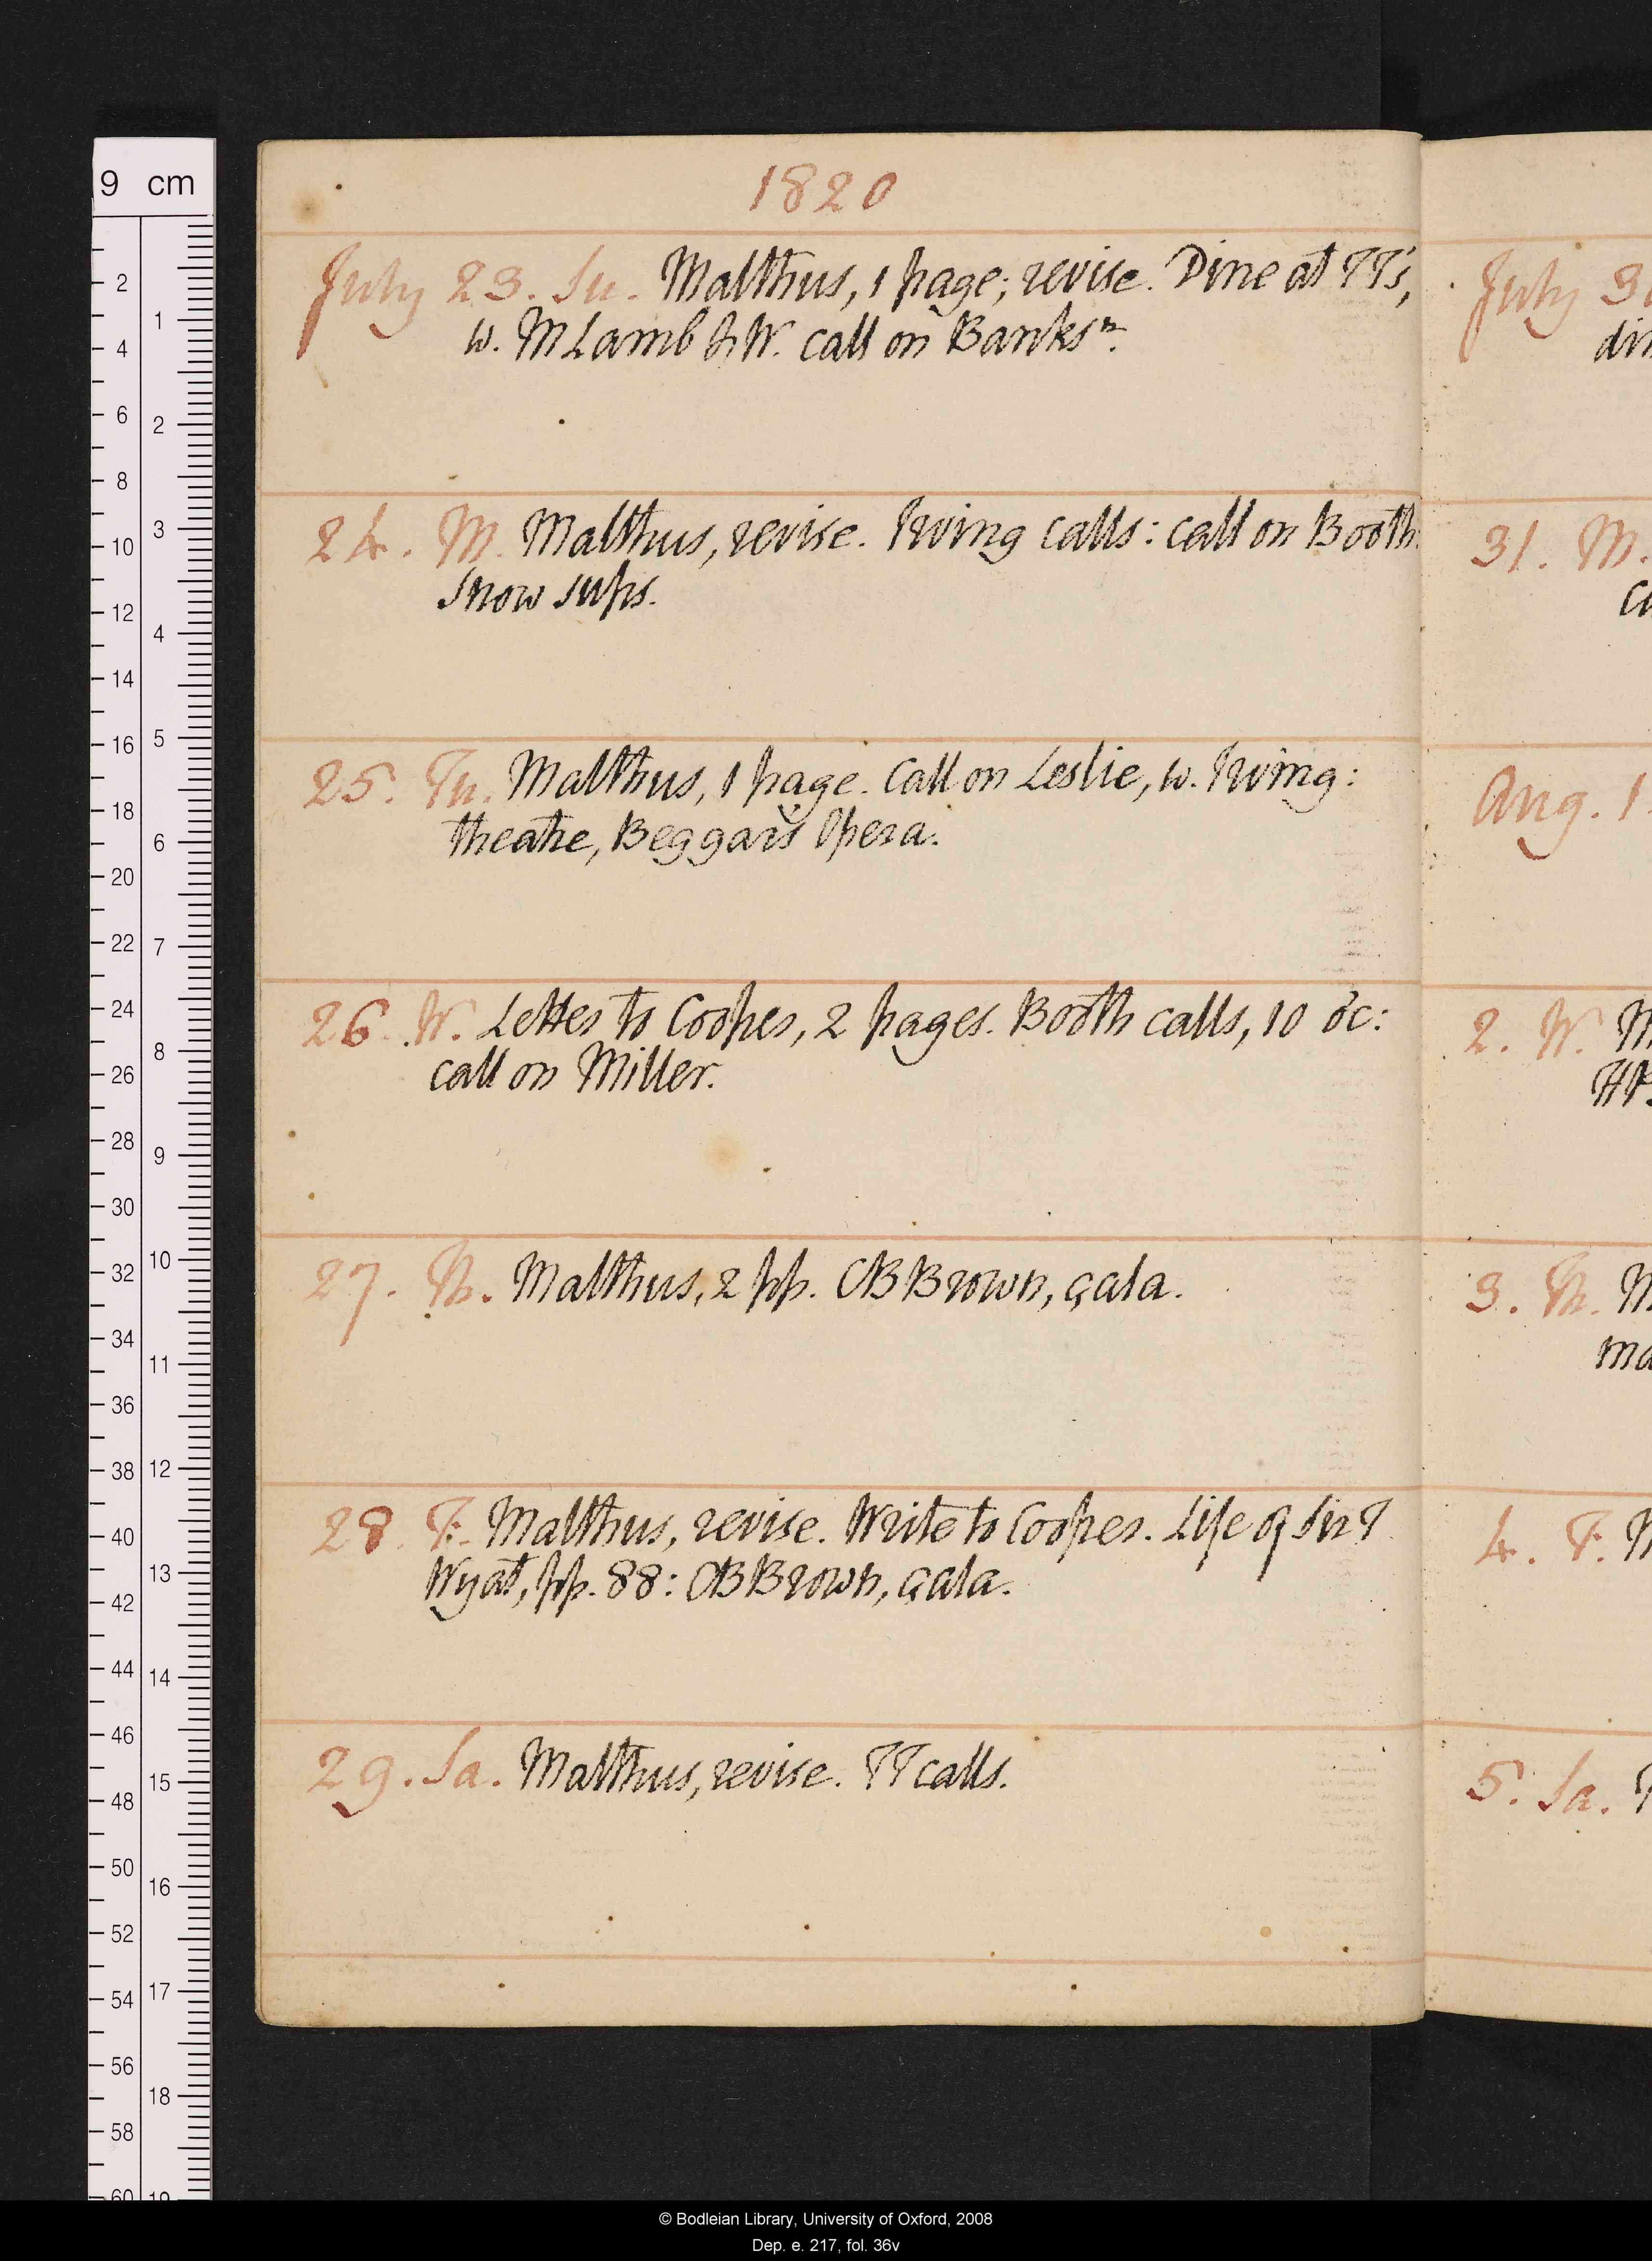 1820
July 23. Su. Malthus, 1 page; revise. Dine at TT's,
w. M Lamb & W. call on Banksn.
24. M. Malthus, revise. Irving calls: call on Booth.
Snow sups.
25. Tu. Malthus, 1 page. Call on Leslie, w. Irving:
theatre, Beggar's Opera.
26. W. Letter to Cooper, 2 pages. Booth calls, 10 o'c:
call on Miller.
27. Th. Malthus, 2 pp. CB Brown, çala.
28. F. Malthus, revise. Write to Cooper. Life of Sir T
Wyat, pp. 88: CB Brown, çala.
29. Sa. Malthus, revise. TT calls.
July 30
din
31. M.
Ca
Aug. 1.
2. W. M
HR
3. Th. M
ma
4. F. M
5. Sa.
9 cm
2
4
6
8
10
12
14
16
18
20
22
24
26
28
30
32
34
36
38
40
42
44
46
48
50
52
54
56
58
60
1
2
3
4
5
6
7
8
9
10
11
12
13
14
15
16
17
18
19
© Bodleian Library, University of Oxford, 2008
Dep. e. 217, fol. 36v